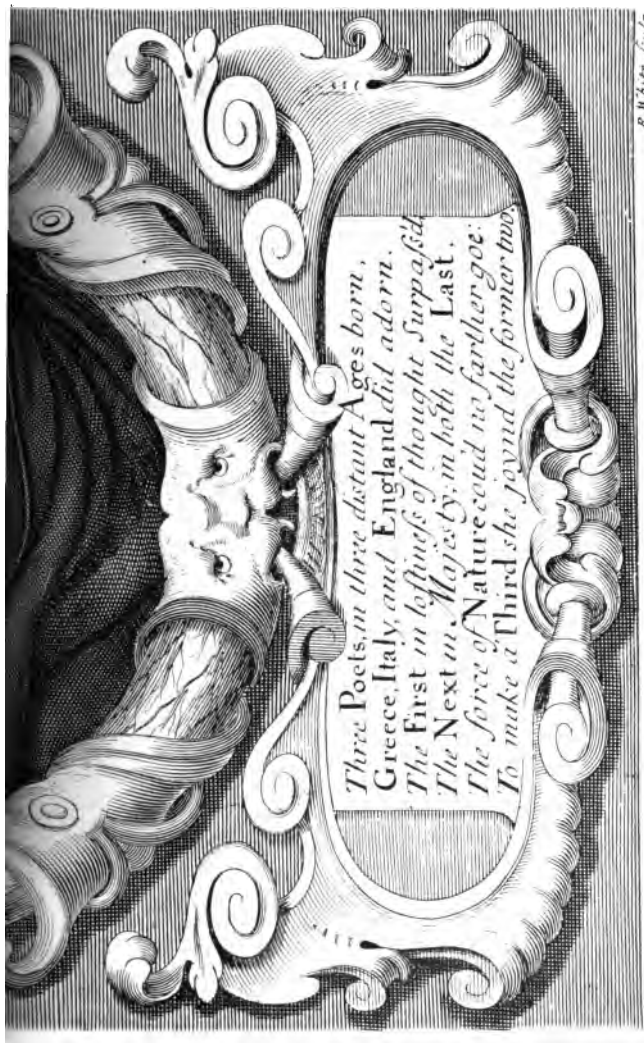 Three Poets, in three distant Ages born,
Greece, Italy, and England did adorn.
The First in loftiness of thought Surpass'd,
The Next in Majesty, in both the Last.
The force of Nature coud no farther goe:
To make a Third she joynd the former two.
R. White